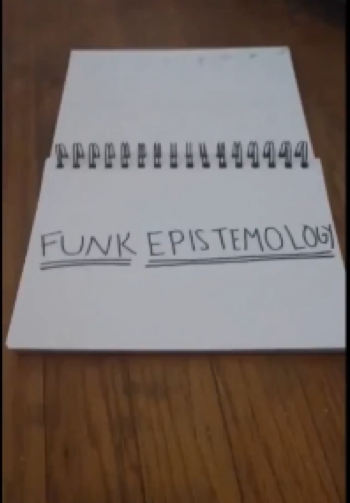 FUNK EPISTEMOLOGY